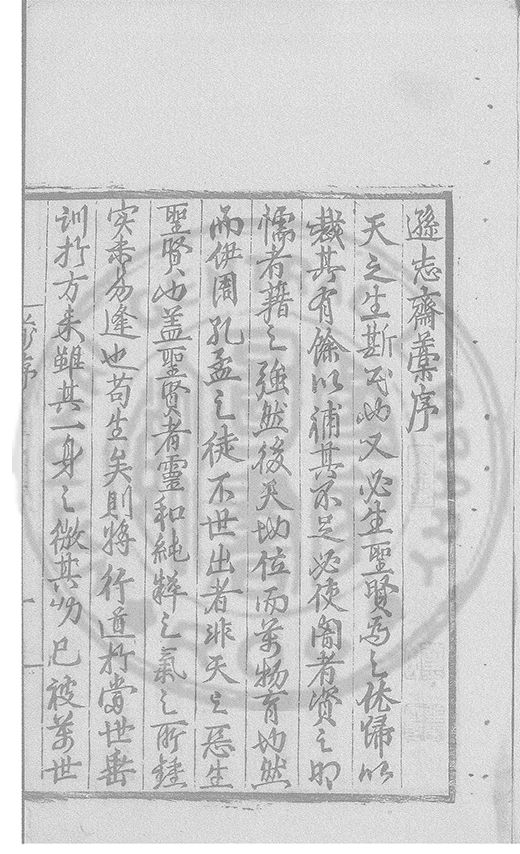 遜志齋藁序
天之生斯民也又必生聖賢為之依歸以
裁其有餘以補其不足必使闇者資之明
懦者藉之強然後天地位而萬物育也然
而伊周孔孟之徒不世出者非天之惡生
聖賢也蓋聖賢者靈和純粹之氣之所鍾
实未易逢也苟生矣則將行道於當世垂
訓於方来雖其一身之微其功已被萬世